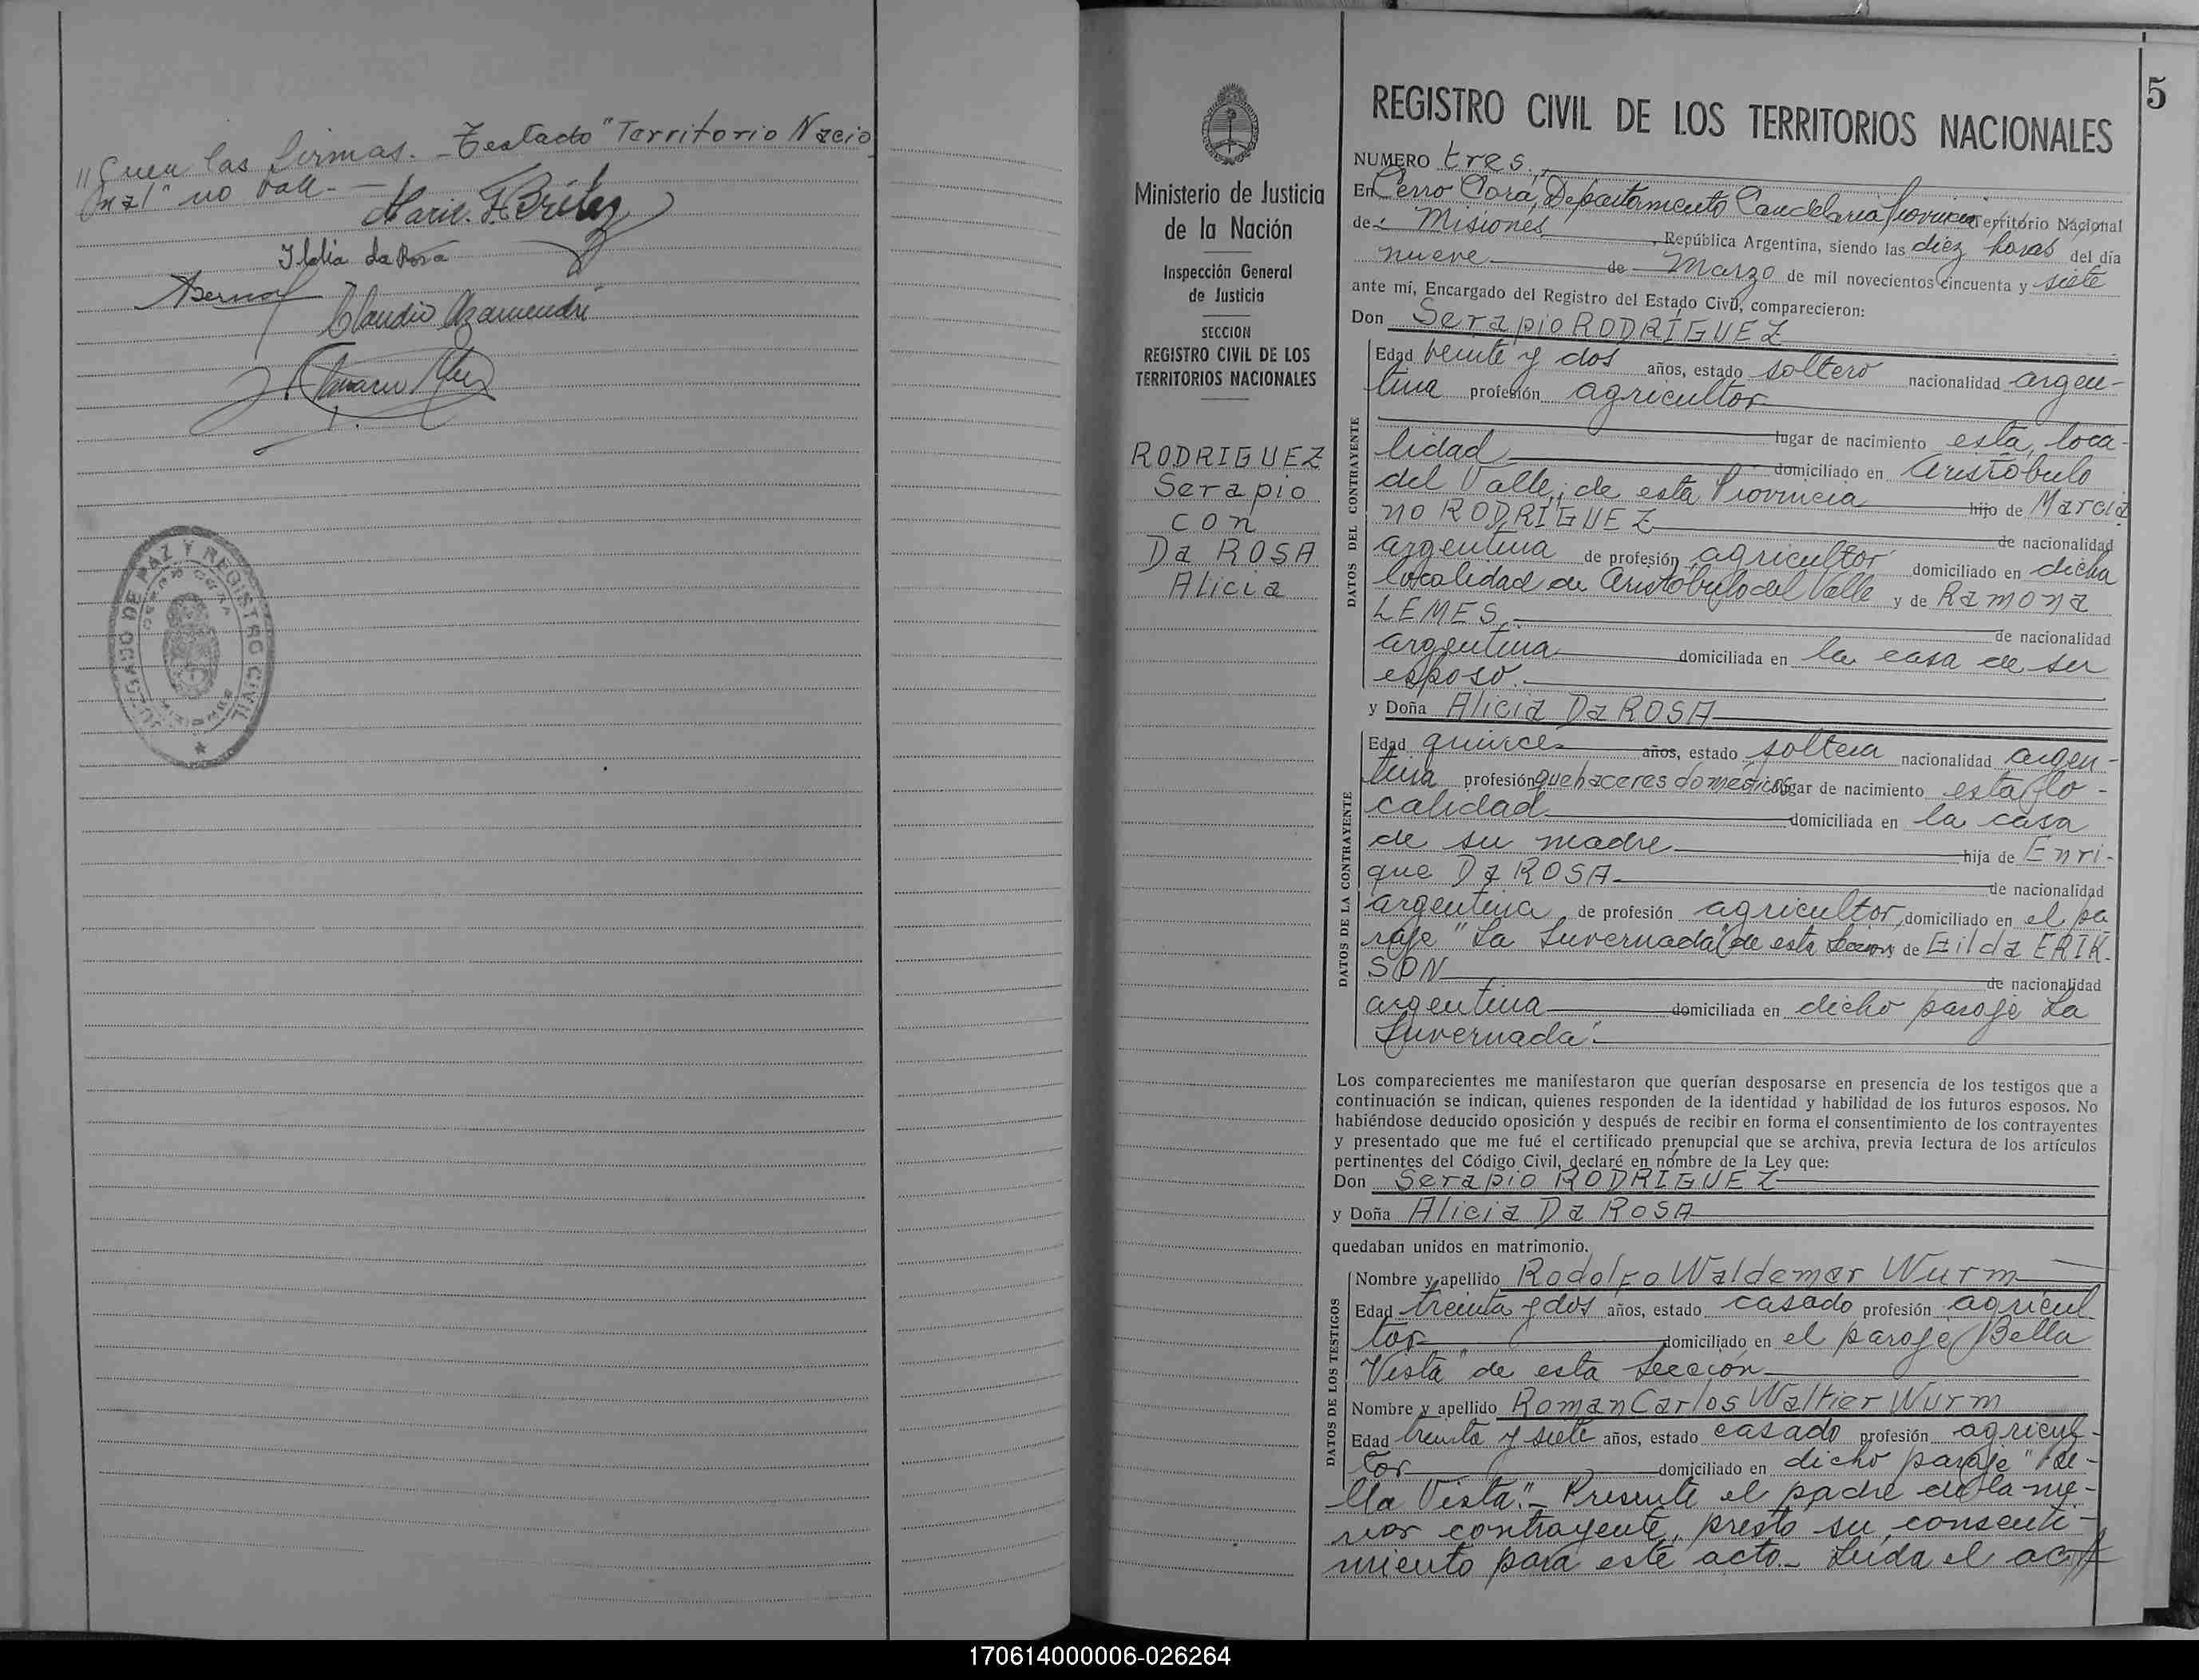 "guen las firmas. - Testado "Territorio Nacio
nal" no vale. -
Ilalia da Rosa
Claudio Azamendi
JUZGADO DE PAZ Y REGISTRO CIVIL
CERRO CORA
MISIONES
5
Ministerio de Justicia
de la Nación
Inspección General
de Justicia
SECCION
REGISTRO CIVIL DE LOS
TERRITORIOS NACIONALES
RODRIGUEZ
Serapio
con
Da ROSA
Alicia
REGISTRO CIVIL DE LOS TERRITORIOS NACIONALES
NUMERO tres.
En Cerro Corá, Departamento Candelaria Provincia Territorio Nacional
de Misiones, República Argentina, siendo las diez horas del día
nueve de Marzo de mil novecientos cincuenta y siete
ante mí, Encargado del Registro del Estado Civil, comparecieron:
Don Serapio RODRÍGUEZ
DATOS DEL CONTRAYENTE
Edad veinte y dos años, estado soltero nacionalidad argen-
tina profesión agricultor
lugar de nacimiento esta loca-
lidad domiciliado en Aristóbulo
del Valle, de esta Provincia hijo de Marcia
no RODRIGUEZ de nacionalidad
argentina de profesión agricultor domiciliado en dicha
localidad de Aristóbulo del Valle y de Ramona
LEMES, de nacionalidad
argentina domiciliada en la casa de su
esposo.
y Doña Alicia Da ROSA
DATOS DE LA CONTRAYENTE
Edad quince años, estado soltera nacionalidad argen-
tina profesión quehaceres domésticos lugar de nacimiento esta lo-
calidad domiciliada en la casa
de su madre hija de Enri-
que Da ROSA de nacionalidad
argentina de profesión agricultor, domiciliado en el pa
raje "La Invernada" de esta Sección y de Gilda ERIK-
SON de nacionalidad
argentina domiciliada en dicho paraje La
Invernada".
Los comparecientes me manifestaron que querían desposarse en presencia de los testigos que a
continuación se indican, quienes responden de la identidad y habilidad de los futuros esposos. No
habiéndose deducido oposición y después de recibir en forma el consentimiento de los contrayentes
y presentado que me fué el certificado prenupcial que se archiva, previa lectura de los artículos
pertinentes del Código Civil, declaré en nombre de la Ley que:
Don Serapio RODRIGUEZ
y Doña Alicia Da ROSA
quedaban unidos en matrimonio.
DATOS DE LOS TESTIGOS
Nombre y apellido Rodolfo Waldemar Wurm
Edad treinta y dos años, estado casado profesión agricul
tor domiciliado en el paraje Bella
Vista" de esta Sección
Nombre y apellido Roman Carlos Waltier Wurm
Edad treinta y siete años, estado casado profesión agricul-
tor domiciliado en dicho paraje "Be-
lla Vista".- Presente el padre de la me-
nor contrayente, prestó su consenti-
miento para este acto.- Leida el acta
170614000006-026264